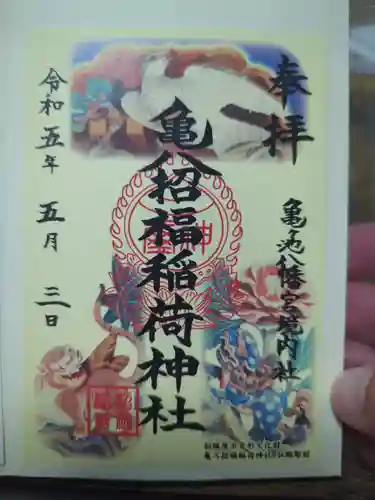 奉拝
亀池八幡宮境内社
亀八招福稲荷神社
令和五年 五月 三日